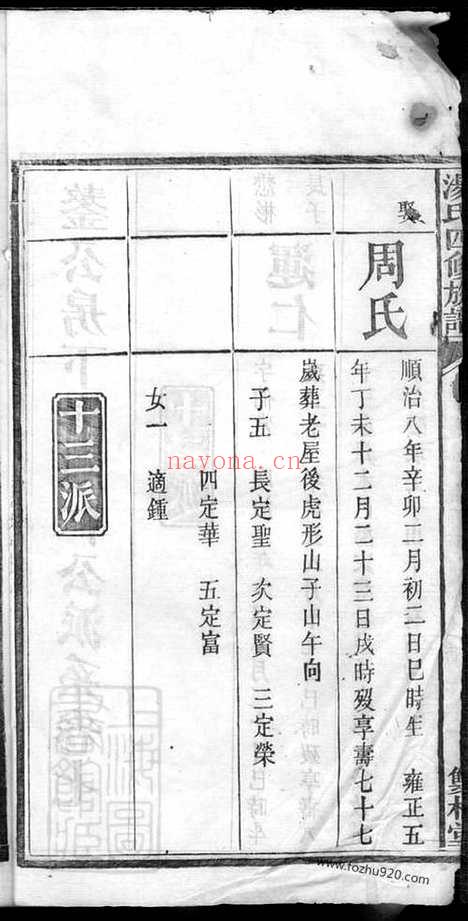 湯氏四修族譜
娶
周氏
順治八年辛卯二月初二日巳時生 雍正五
年丁未十二月二十三日戌時歿享壽七十七
歲葬老屋後虎形山子山午向
子五 長定聖 次定賢 三定榮
四定華 五定富
女一 適鍾
十三派
nayona.cn
www.tozhu920.com